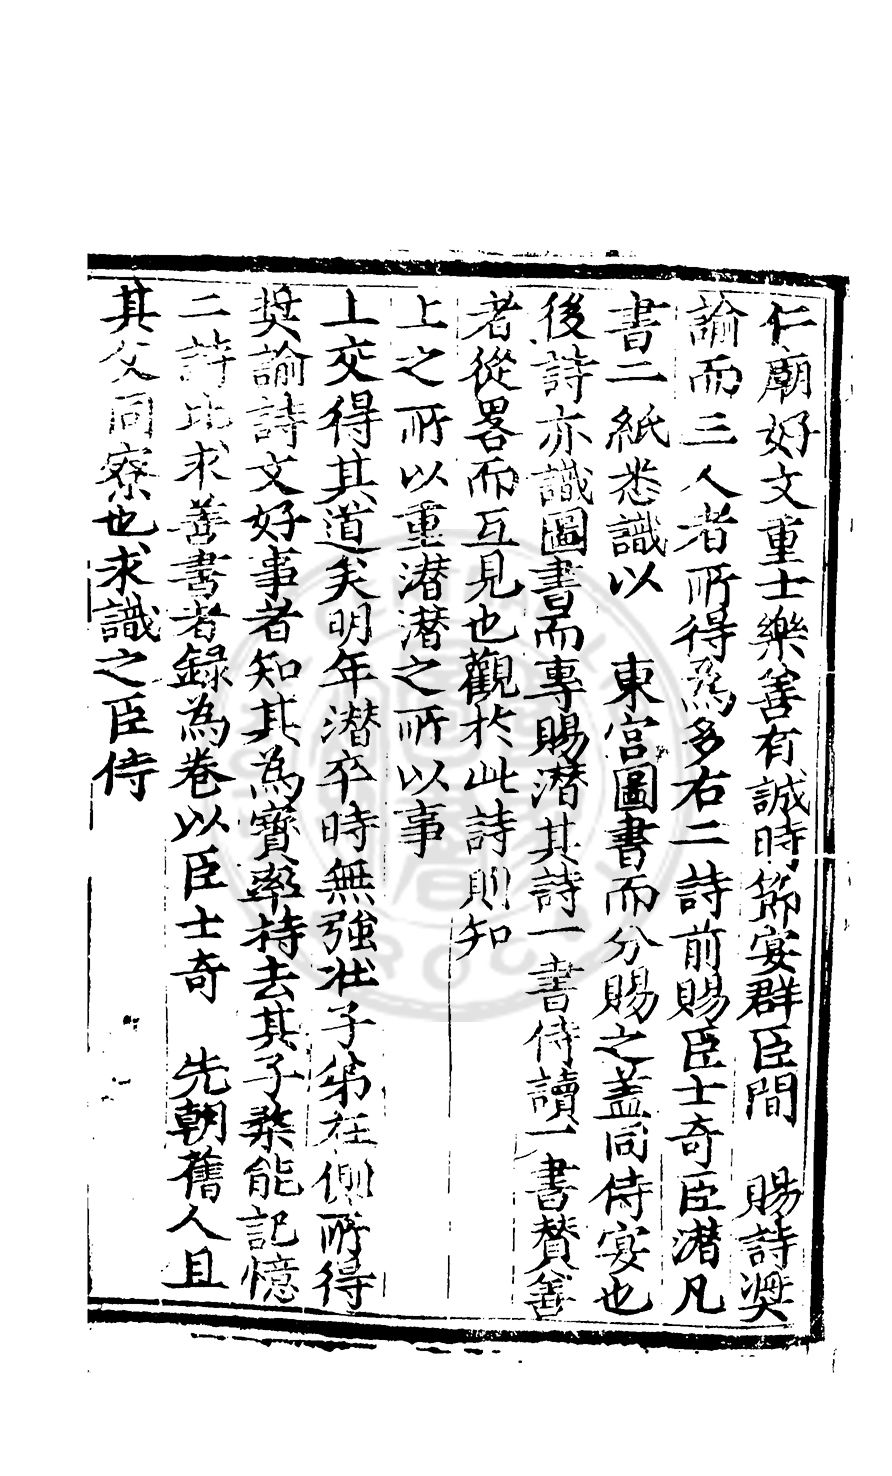 仁廟好文重士樂善有誠時節宴群臣間　賜詩奬
諭而三人者所得為多右二詩前賜臣士奇臣潜凡
書二紙悉識以　東宮圖書而分賜之盖同侍宴也
後詩亦識圖書而專賜潜其詩一書侍讀一書賛善
者從畧而互見也觀於此詩則知
上之所以重潜潜之所以事
上交得其道矣明年潜卒時無強壯子弟在側所得
奬諭詩文好事者知其為寳率持去其子棨能記憶
二詩比求善書者録為卷以臣士奇　先朝舊人且
其父同寮也求識之臣侍